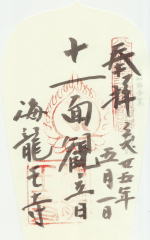 奉拝
平成廿五年
五月一日
十一面観音
海龍王寺